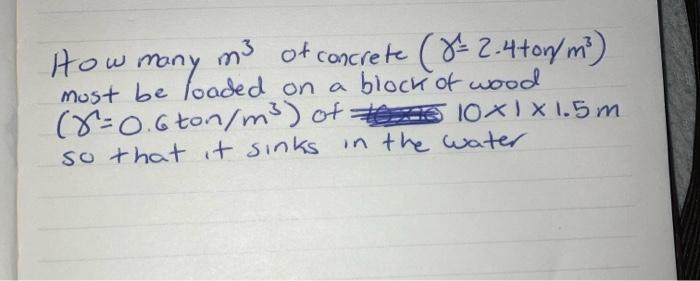 How many m³ of concrete (γ = 2.4ton/m³)
must be loaded on a block of wood
(γ = 0.6ton/m³) of 10 x 1 x 1.5 m
so that it sinks in the water